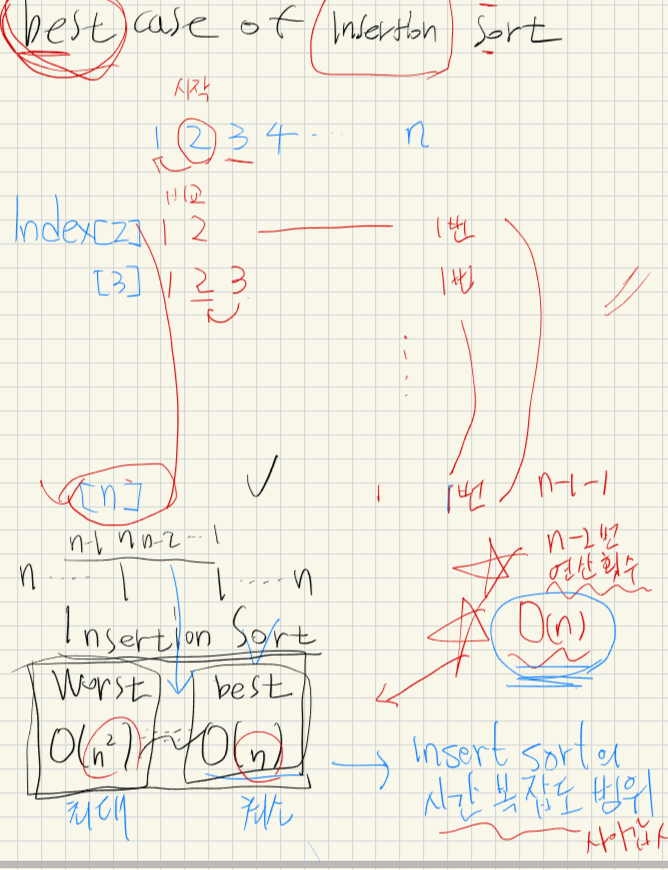 best case of Insertion Sort
시작
1 2 3 4 ...... n
비교
Index[2] 1 2 1번
[3] 1 2 3 1번
[n] 1번 n-1-1
n-1 n n-2 ... 1
n-2번
연산횟수
n ..... 1 1 ..... n
O(n)
Insertion Sort
Worst best
O(n²) ~ O(n)
최대 최소
Insert sort의
시간 복잡도 범위